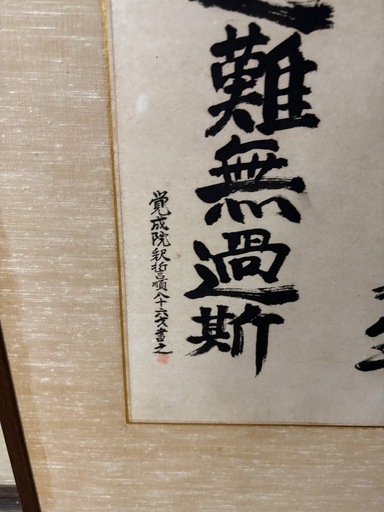 難無過斯
覚成院釈哲 八十六才書之